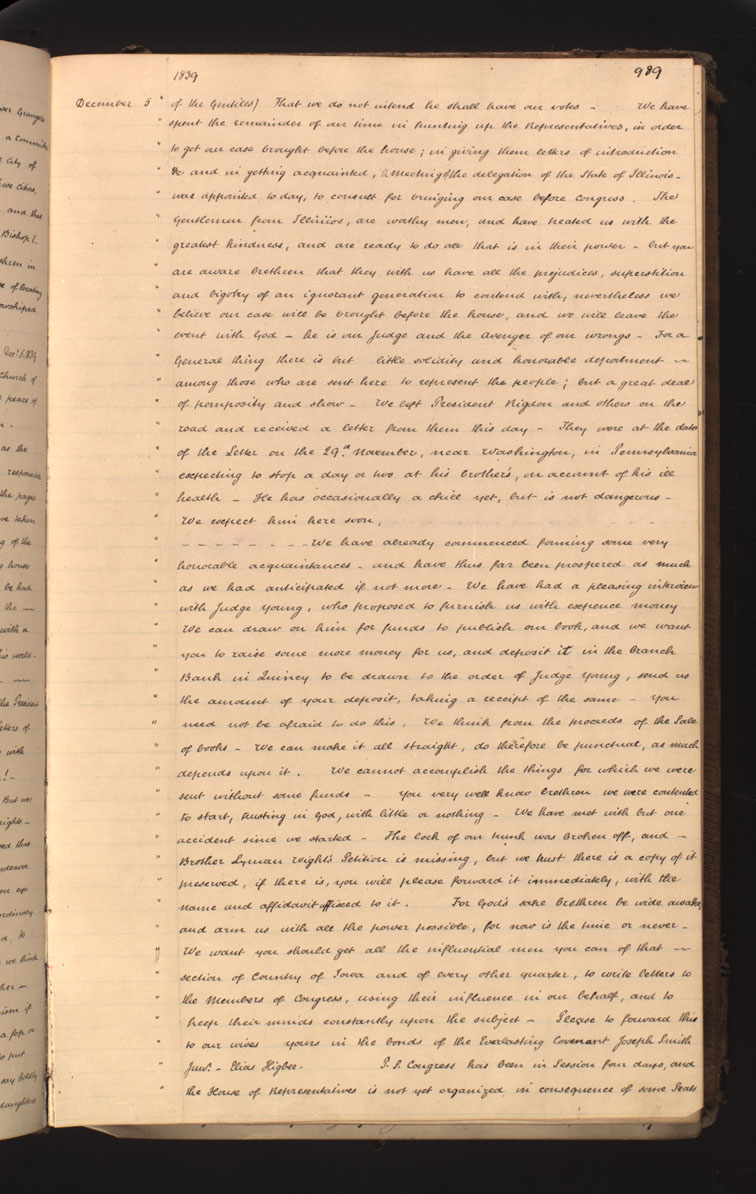 1839
989
December 5 " of the Gentiles) That we do not intend he shall have our votes - We have
" spent the remainder of our time in hunting up the Representatives, in order
" to get our case brought before the house; in giving them letters of introduction
" &c and in getting acquainted, a meeting of the delegation of the State of Illinois -
" was appointed to day, to consult for bringing our case before Congress. The
" Gentlemen from Illinois, are worthy men, and have treated us with the
" greatest kindness, and are ready to do all that is in their power - but you
" are aware brethren that they with us have all the prejudices, superstition
" and bigotry of an ignorant generation to contend with, nevertheless we
" believe our case will be brought before the house, and we will leave the
" event with God - he is our Judge and the avenger of our wrongs - For a
" General thing there is but little solidity and honorable deportment -
" among those who are sent here to represent the people; but a great deal
" of pomposity and show - We left President Rigdon and others on the
" road and received a letter from them this day - They were at the date
" of the Letter on the 29.th November, near Washington, in Pennsylvania
" expecting to stop a day or two at his brother's, on account of his ill
" health - He has occasionally a chill yet, but is not dangerous -
" We expect him here soon, - - - - - - - - - -
" - - - - - - - We have already commenced forming some very
" honorable acquaintances - and have thus far been prospered as much
" as we had anticipated if not more - We have had a pleasing interview
" with Judge Young, who proposed to furnish us with expence money
" We can draw on him for funds to publish our book, and we want
" you to raise some more money for us, and deposit it in the Branch
" Bank in Quincy to be drawn to the order of Judge Young, send us
" the amount of your deposit, taking a receipt of the same - you
" need not be afraid to do this, We think from the proceeds of the Sale
" of books - We can make it all straight, do therefore be punctual, as much
" depends upon it. We cannot accomplish the things for which we were
" sent without some funds - you very well know brethren we were contented
" to start, trusting in God, with little or nothing - We have met with but one
" accident since we started - The lock of our trunk was Broken off, and -
" Brother Lyman Wight's Petition is missing, but we trust there is a copy of it
" preserved, if there is, you will please forward it immediately, with the
" name and affidavit affixed to it. For God's sake Brethren be wide awake,
" and arm us with all the power possible, for now is the time or never -
" We want you should get all the influential men you can of that -
" section of Country of Iowa and of every other quarter, to write letters to
" the Members of Congress, using their influence in our behalf, and to
" keep their minds constantly upon the subject - Please to forward this
" to our wives yours in the bonds of the Everlasting Covenant Joseph Smith
" Junr. - Elias Higbee - P. S. Congress has been in Session four days, and
" the House of Representatives is not yet organized, in consequence of some Seats